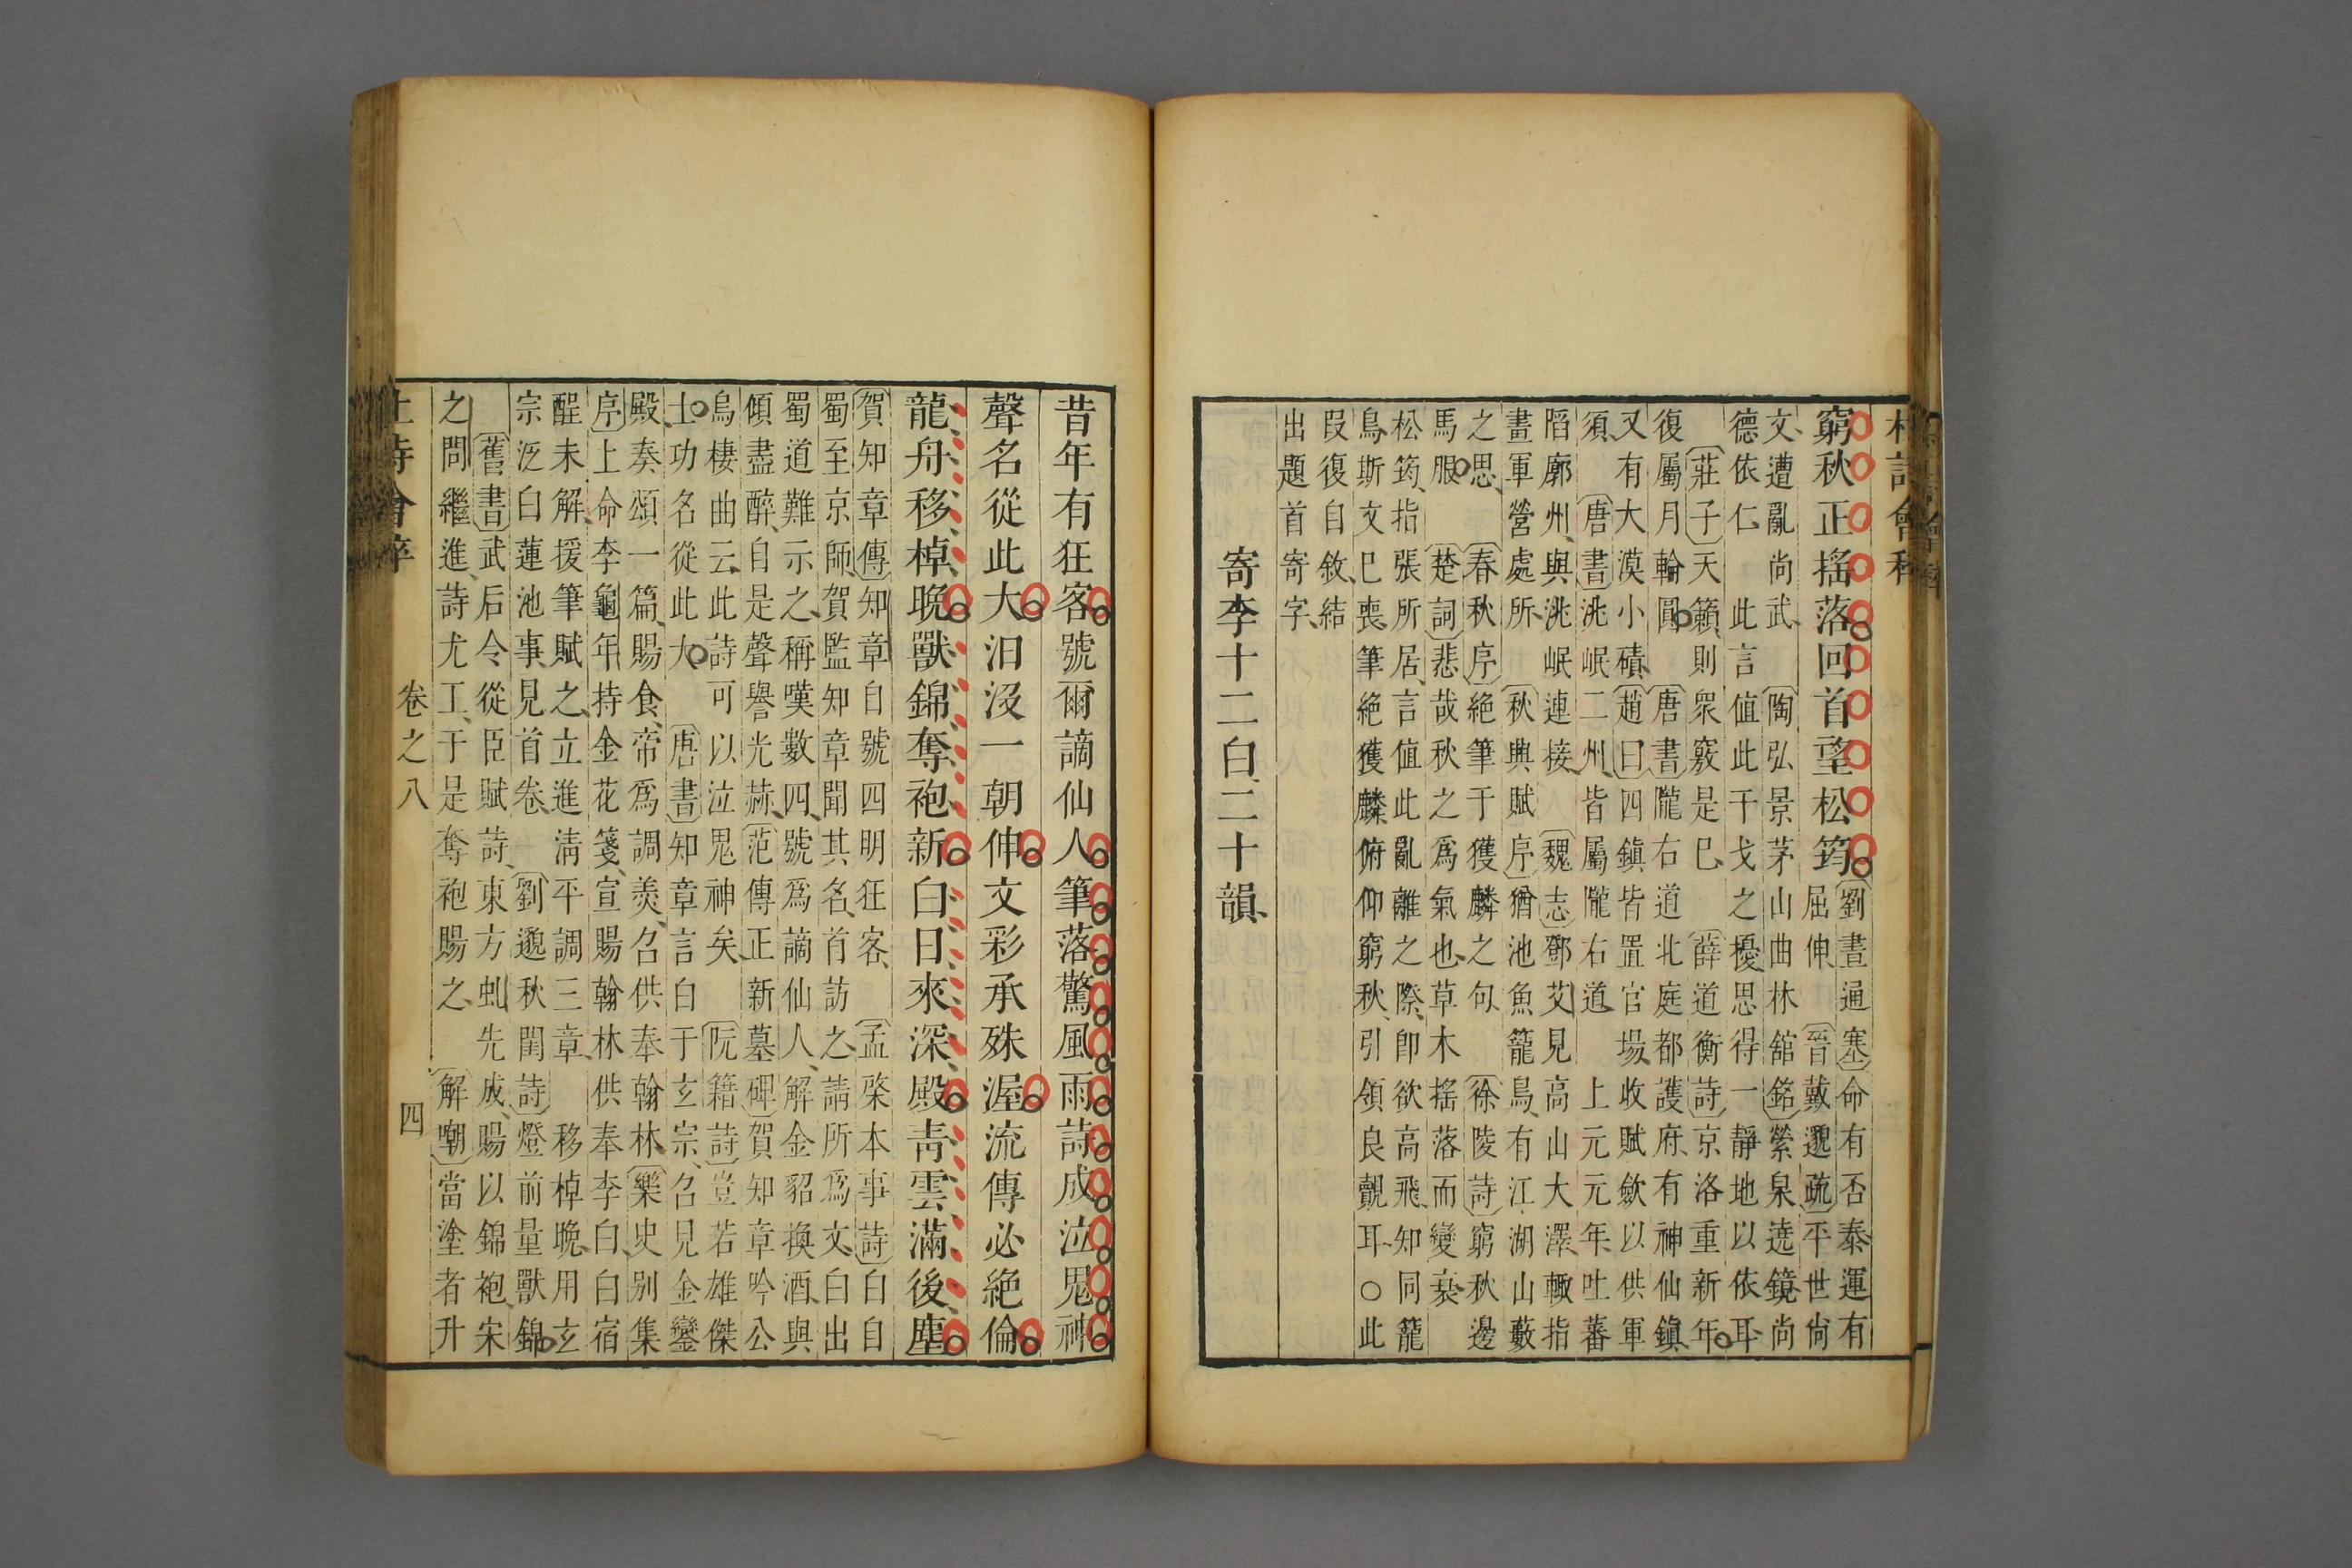 杜詩會粹
窮秋正搖落回首望松筠
劉晝通塞命有否泰運有
屈伸 晉戴逵疏平世尙
文遭亂尚武 陶弘景茅山曲林舘銘縈泉遶鏡尚
德依仁 此言值此干戈之擾思得一靜地以依耳
莊子天籟則眾竅是巳 薛道衡詩京洛重新年
復屬月輪圓 唐書隴右道北庭都護府有神仙鎮
又有大漠小磧 趙曰四鎮皆置官場收賦歛以供軍
須 唐書洮岷二州皆屬隴右道 上元元年吐蕃
陷廓州與洮岷連接 魏志鄧艾見高山大澤輙指
畫軍營處所 秋興賦序猶池魚籠鳥有江湖山藪
之思 春秋序絕筆于獲麟之句 徐陵詩窮秋邊
馬服 楚詞悲哉秋之爲氣也草木搖落而變衰
松筠指張所居言值此亂離之際卽欲高飛知同籠
鳥斯文巳喪筆絕獲麟俯仰窮秋引領良覿耳○此
叚復自敘結
出題首寄字
寄李十二白二十韻
昔年有狂客號爾謫仙人筆落驚風雨詩成泣鬼神
聲名從此大汨沒一朝伸文彩承殊渥流傳必絕倫
龍舟移棹晚獸錦奪袍新白日來深殿青雲滿後塵
賀知章傳知章自號四明狂客 孟棨本事詩白自
蜀至京師賀監知章聞其名首訪之請所爲文白出
蜀道難示之稱嘆數四號爲謫仙人解金貂換酒與
傾盡醉自是聲譽光赫 范傳正新墓碑賀知章吟公
烏棲曲云此詩可以泣鬼神矣 阮籍詩豈若雄傑
士功名從此大 唐書知章言白于玄宗召見金鑾
殿奏頌一篇賜食帝爲調羹召供奉翰林 樂史别集
序上命李龜年持金花箋宣賜翰林供奉李白白宿
酲未解援筆賦之立進清平調三章 移棹晚用玄
宗泛白蓮池事見首卷 劉邈秋閨詩燈前量獸錦
舊書武后令從臣賦詩東方虬先成賜以錦袍宋
之問繼進詩尤工于是奪袍賜之 解嘲當塗者升
杜詩會粹 卷之八 四